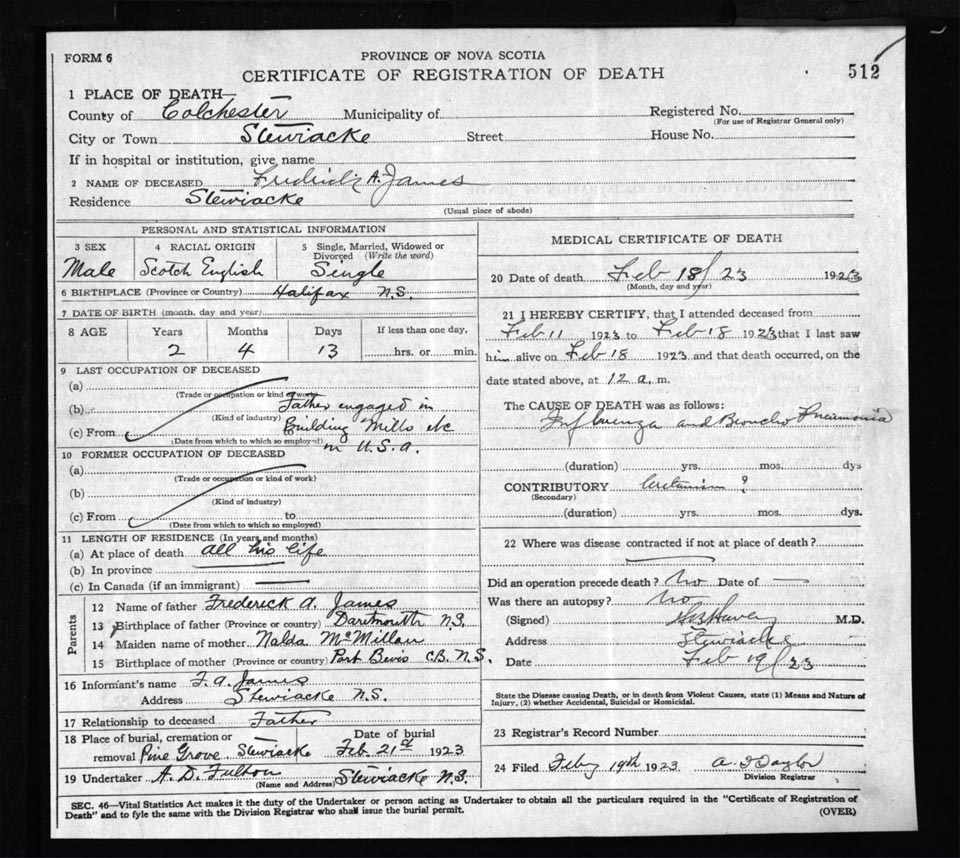 FORM 6
PROVINCE OF NOVA SCOTIA
CERTIFICATE OF REGISTRATION OF DEATH
512
1 PLACE OF DEATH—
County of Colchester Municipality of Registered No.
(For use of Registrar General only)
City or Town Stewiacke Street House No.
If in hospital or institution, give name
2 NAME OF DECEASED A. James
Residence Stewiacke
(Usual place of abode)
PERSONAL AND STATISTICAL INFORMATION
3 SEX 4 RACIAL ORIGIN 5 Single, Married, Widowed or
Divorced (Write the word)
Male Scotch English Single
6 BIRTHPLACE (Province or Country) Halifax N.S.
7 DATE OF BIRTH (month, day and year)
8 AGE Years Months Days If less than one day,
2 4 13 hrs. or min.
9 LAST OCCUPATION OF DECEASED
(a)
(Trade or occupation or kind of work)
(b) Father engaged in
(Kind of industry)
(c) From Building Mills etc
(Date from which to which so employed)
in U.S.A.
10 FORMER OCCUPATION OF DECEASED
(a)
(Trade or occupation or kind of work)
(b)
(Kind of industry)
(c) From to
(Date from which to which so employed)
11 LENGTH OF RESIDENCE (In years and months)
(a) At place of death all his life
(b) In province
(c) In Canada (if an immigrant)
Parents
12 Name of father Frederick A. James
13 Birthplace of father (Province or country) Dartmouth N.S.
14 Maiden name of mother Nalda McMillan
15 Birthplace of mother (Province or country) Port Bevis C.B. N.S.
16 Informant's name F. A. James
Address Stewiacke N.S.
17 Relationship to deceased Father
18 Place of burial, cremation or Date of burial
removal Pine Grove, Stewiacke Feb. 21st 1923
19 Undertaker A. D. Fulton Stewiacke N.S.
(Name and Address)
MEDICAL CERTIFICATE OF DEATH
20 Date of death Feb 18/23 1923
(Month, day and year)
21 I HEREBY CERTIFY, that I attended deceased from
Feb 11 1923 to Feb 18 1923 that I last saw
him alive on Feb 18 1923 and that death occurred, on the
date stated above, at 12 a. m.
The CAUSE OF DEATH was as follows:
Influenza and Broncho Pneumonia
(duration) yrs. mos. dys
CONTRIBUTORY ?
(Secondary)
(duration) yrs. mos. dys.
22 Where was disease contracted if not at place of death?
Did an operation precede death? No Date of —
Was there an autopsy? No
(Signed) M.D.
Address Stewiacke
Date Feb 19/23
State the Disease causing Death, or in death from Violent Causes, state (1) Means and Nature of
Injury, (2) whether Accidental, Suicidal or Homicidal.
23 Registrar's Record Number
24 Filed Feby 19th 1923
Division Registrar
SEC. 46—Vital Statistics Act makes it the duty of the Undertaker or person acting as Undertaker to obtain all the particulars required in the "Certificate of Registration of
Death" and to fyle the same with the Division Registrar who shall issue the burial permit.
(OVER)